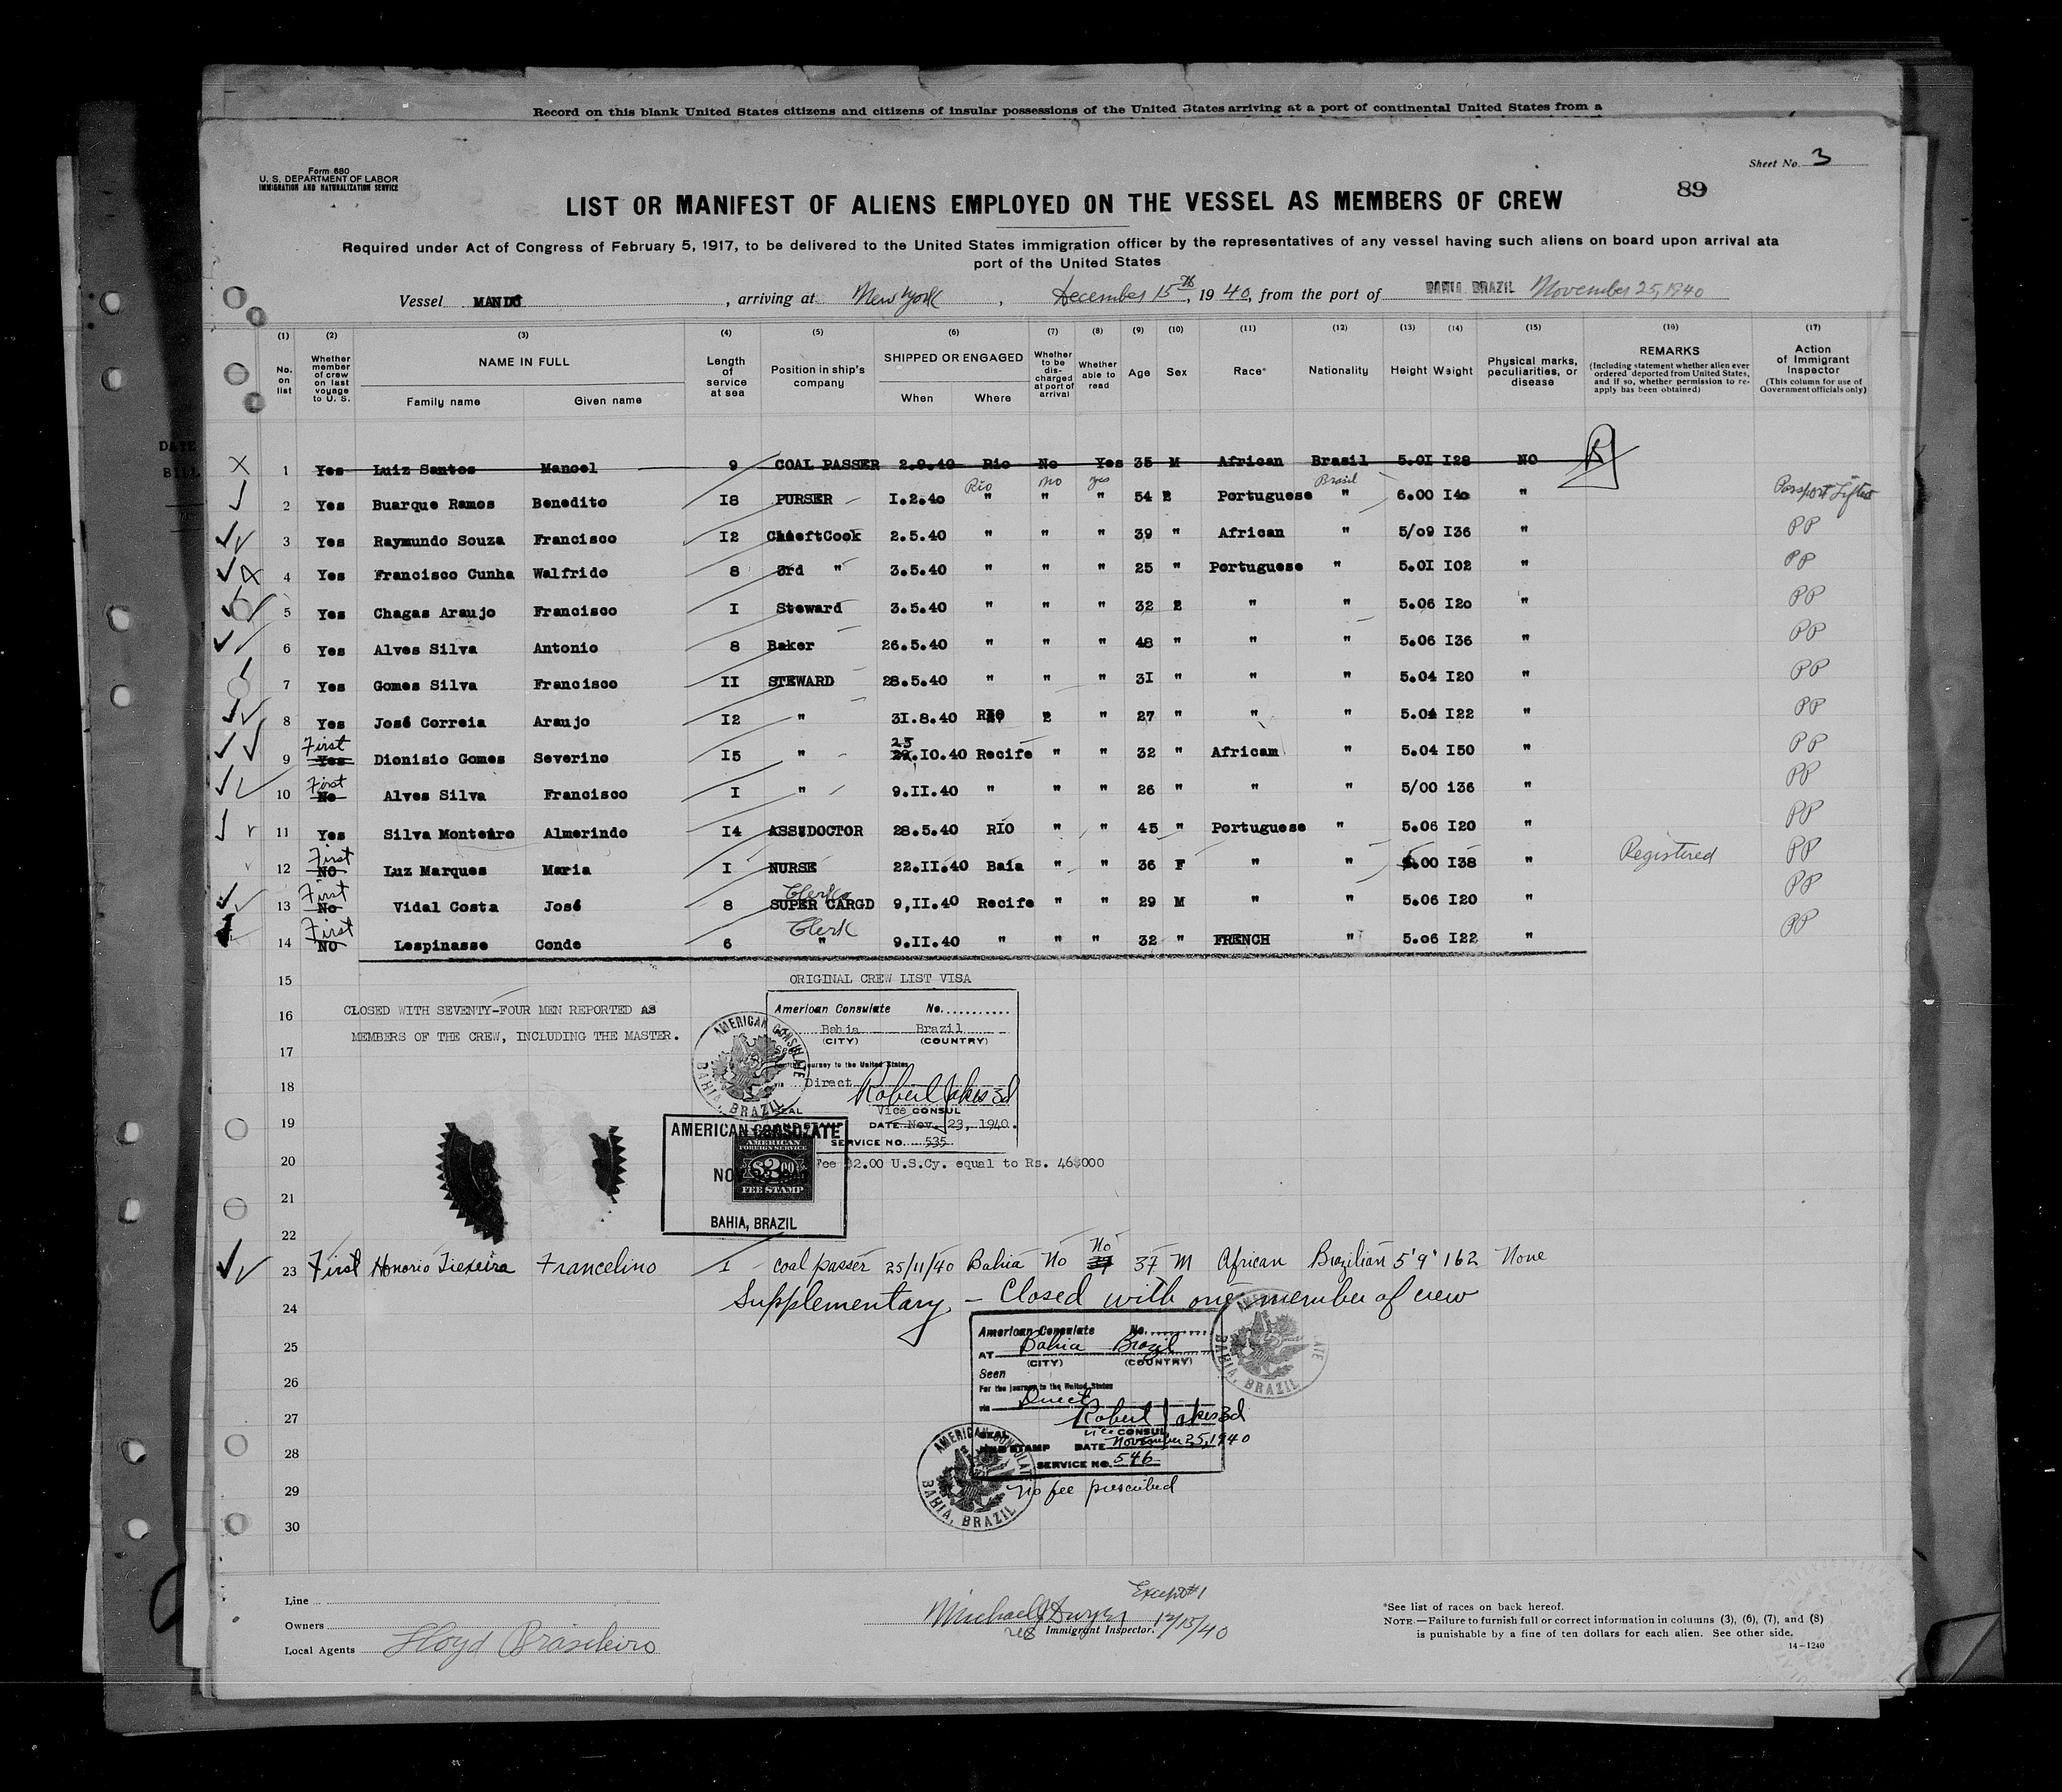 Record on this blank United States citizens and citizens of insular possessions of the United States arriving at a port of continental United States from a
Form 680
U. S. DEPARTMENT OF LABOR
IMMIGRATION AND NATURALIZATION SERVICE
Sheet No. 3
89
LIST OR MANIFEST OF ALIENS EMPLOYED ON THE VESSEL AS MEMBERS OF CREW
Required under Act of Congress of February 5, 1917, to be delivered to the United States immigration officer by the representatives of any vessel having such aliens on board upon arrival at a
port of the United States
Vessel MANDÚ, arriving at New York, December 15th, 1940, from the port of BAHIA BRAZIL November 25, 1940
(1) (2) (3) (4) (5) (6) (7) (8) (9) (10) (11) (12) (13) (14) (15) (16) (17)
No. on list
Whether member of crew on last voyage to U. S.
NAME IN FULL
Family name Given name
Length of service at sea
Position in ship's company
SHIPPED OR ENGAGED
When Where
Whether to be discharged at port of arrival
Whether able to read
Age Sex Race* Nationality Height Weight
Physical marks, peculiarities, or disease
REMARKS
(Including statement whether alien ever ordered deported from United States, and if so, whether permission to reapply has been obtained)
Action of Immigrant Inspector
(This column for use of Government officials only)
DATE
BILL
1 Yes Luiz Santos Manoel 9 COAL PASSER 2.9.40 Rio No Yes 35 M African Brasil 5.0I I28 NO
2 Yes Buarque Ramos Benedito I8 PURSER I.2.40 Rio " No " yes " 54 Portuguese Brasil " 6.00 I40 " Passport Lifted
3 Yes Raymundo Souza Francisco I2 ChieftCook 2.5.40 " " " 39 " African " 5/09 I36 " PP
4 Yes Francisco Cunha Walfrido 8 3rd " 3.5.40 " " " 25 " Portuguese " 5.0I I02 " PP
5 Yes Chagas Araujo Francisco I Steward 3.5.40 " " " 32 " " " 5.06 I20 " PP
6 Yes Alves Silva Antonio 8 Baker 26.5.40 " " " 48 " " " 5.06 I36 " PP
7 Yes Gomes Silva Francisco II STEWARD 28.5.40 " " " 3I " " " 5.04 I20 " PP
8 Yes José Correia Araujo I2 " 3I.8.40 RIO " " 27 " " " 5.04 I22 " PP
9 First Yes Dionisio Gomes Severino I5 " 23 .I0.40 Recife " " 32 " African " 5.04 I50 " PP
10 First No Alves Silva Francisco I " 9.II.40 " " " 26 " " " 5/00 I36 " PP
11 Yes Silva Monteiro Almerindo I4 ASS:DOCTOR 28.5.40 RIO " " 45 " Portuguese " 5.06 I20 " PP
12 First NO Luz Marques Maria I NURSE 22.II.40 Baia " " 36 F " " .00 I38 " Registered PP
13 First No Vidal Costa José 8 SUPER CARGO 9,II.40 Recife " " 29 M " " 5.06 I20 " PP
14 First NO Lespinasse Conde 6 Clerk " 9.II.40 " " " 32 " FRENCH " 5.06 I22 " PP
15
ORIGINAL CREW LIST VISA
16 CLOSED WITH SEVENTY-FOUR MEN REPORTED AS
MEMBERS OF THE CREW, INCLUDING THE MASTER.
American Consulate No.
Bahia Brazil
(CITY) (COUNTRY)
17
journey to the United States
18 via Direct
Robert Jakes 3d
SEAL Vice CONSUL
19 DATE Nov. 23, 1940.
SERVICE NO. 535
AMERICAN CONSULATE BAHIA, BRAZIL
AMERICAN CONSULATE
AMERICAN
FOREIGN SERVICE
$2.00
FEE STAMP
BAHIA, BRAZIL
20 Fee $2.00 U.S.Cy. equal to Rs. 46$000
21
22
23 First Honorio Tiexeira Francelino I coal passer 25/11/40 Bahia No No 37 M African Brazilian 5'9" 162 None
24 Supplementary - Closed with one member of crew
American Consulate No.
25 AT Bahia Brazil
(CITY) (COUNTRY)
26 Seen
For the journey to the United States
via Direct
27 Robert Jakes 3d
vice CONSUL
SEAL
AND STAMP DATE November 25, 1940
28 SERVICE NO. 546
AMERICAN CONSULATE BAHIA, BRAZIL
29 no fee prescribed
30
Line
Owners
Local Agents Lloyd Brasileiro
Except #1
Michael J Dwyer 12/15/40
Immigrant Inspector.
*See list of races on back hereof.
NOTE.—Failure to furnish full or correct information in columns (3), (6), (7), and (8)
is punishable by a fine of ten dollars for each alien. See other side.
14—1240